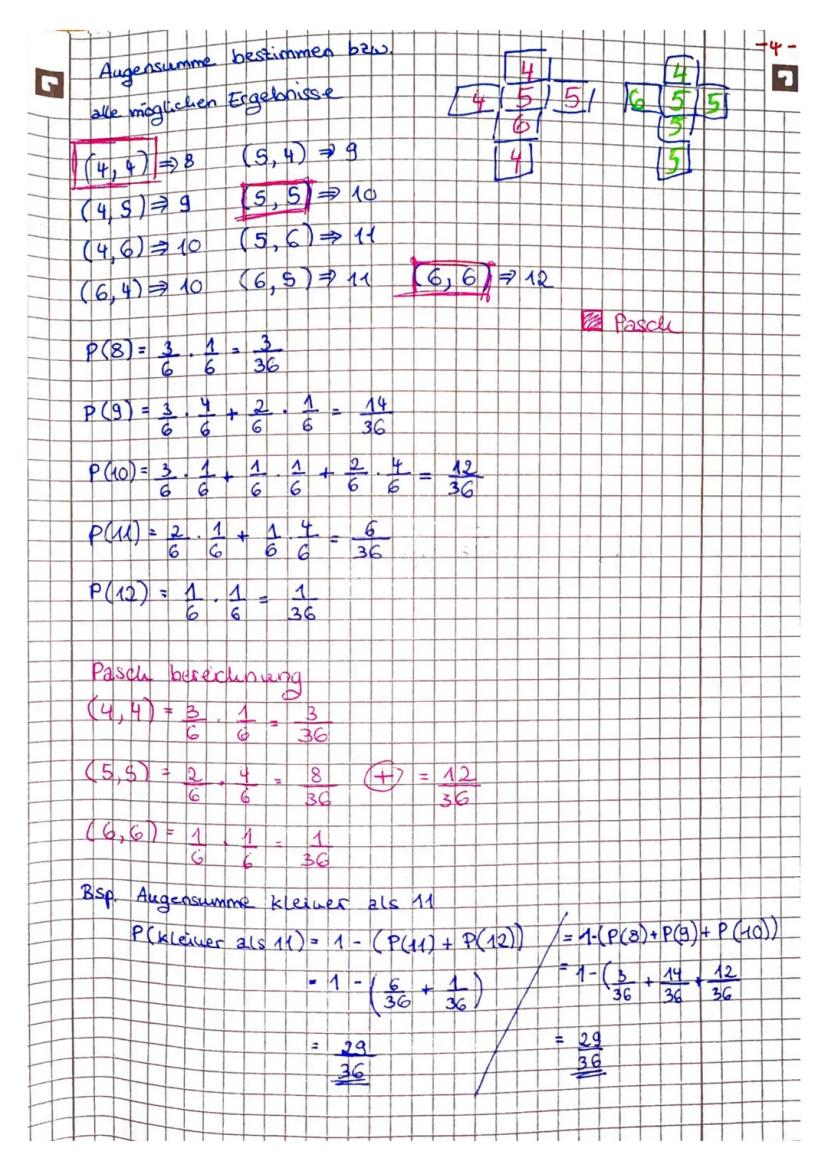 -4-
Augensumme bestimmen bzw.
alle möglichen Ergebnisse
4
4 5 5
6
4
4
6 5 5
5
5
(4,4) ⇒ 8 (5,4) ⇒ 9
(4,5) ⇒ 9 (5,5) ⇒ 10
(4,6) ⇒ 10 (5,6) ⇒ 11
(6,4) ⇒ 10 (6,5) ⇒ 11 (6,6) ⇒ 12
Pasch
P(8) = 3/6 · 1/6 = 3/36
P(9) = 3/6 · 4/6 + 2/6 · 1/6 = 14/36
P(10) = 3/6 · 1/6 + 1/6 · 1/6 + 2/6 · 4/6 = 12/36
P(11) = 2/6 · 1/6 + 1/6 · 4/6 = 6/36
P(12) = 1/6 · 1/6 = 1/36
Pasch berechnung
(4,4) = 3/6 · 1/6 = 3/36
(5,5) = 2/6 · 4/6 = 8/36 (+) = 12/36
(6,6) = 1/6 · 1/6 = 1/36
Bsp. Augensumme kleiner als 11
P(kleiner als 11) = 1 - (P(11) + P(12))
= 1 - (6/36 + 1/36)
= 29/36
= 1-(P(8) + P(9) + P(10))
= 1-(3/36 + 14/36 + 12/36
= 29/36